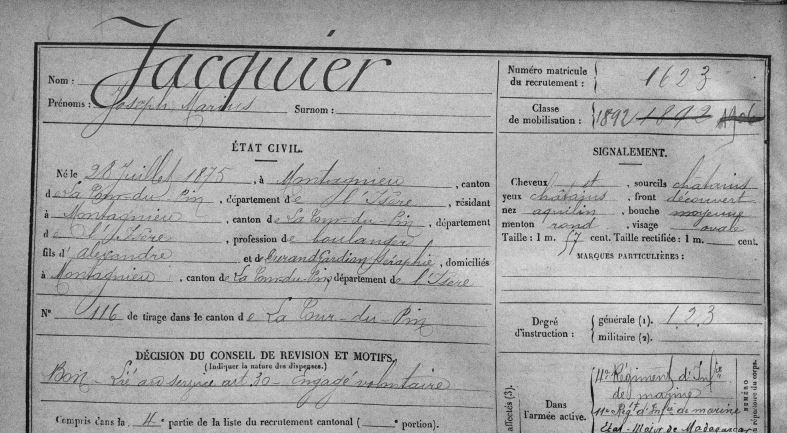 Nom : Jacquier
Prénoms : Joseph Marius Surnom :
ÉTAT CIVIL.
Né le 28 Juillet 1875, à Montagnieu, canton
de La Tour-du-Pin, département de l'Isère, résidant
à Montagnieu, canton de La Tour-du-Pin, département
de l'Isère, profession de boulanger
fils d'Alexandre et de Durand Cardian Séraphie, domiciliés
à Montagnieu, canton de La Tour-du-Pin département de l'Isère
N° 116 de tirage dans le canton de La Tour-du-Pin
DÉCISION DU CONSEIL DE REVISION ET MOTIFS.
(Indiquer la nature des dispenses.)
Bon - Lié au service art. 30 - Engagé volontaire
Compris dans la 4e partie de la liste du recrutement cantonal ( portion).
Numéro matricule
du recrutement : 1623
Classe
de mobilisation : 1892 1892 1906
SIGNALEMENT.
Cheveux et, sourcils châtains
yeux châtains, front découvert
nez aquilin, bouche moyenne
menton rond, visage ovale
Taille : 1 m. 57 cent. Taille rectifiée : 1 m. cent.
MARQUES PARTICULIÈRES :
Degré
d'instruction :
générale (1). 1.2.3
militaire (2).
affectés (3).
Dans
l'armée active.
4e Régiment d'Infie
de marine
11e Régt d'Infie de marine
Etat-Major de Madagascar
NUMÉRO
répertoire du corps.